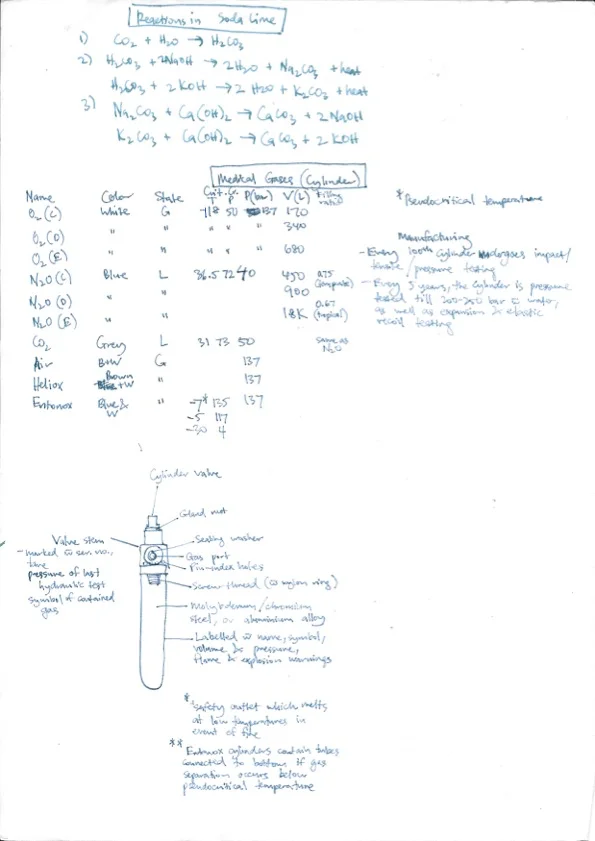 Reactions in Soda Lime
1) CO2 + H2O → H2CO3
2) H2CO3 + 2NaOH → 2H2O + Na2CO3 + heat
H2CO3 + 2 KOH → 2 H2O + K2CO3 + heat
3) Na2CO3 + Ca(OH)2 → CaCO3 + 2 NaOH
K2CO3 + Ca(OH)2 → CaCO3 + 2 KOH
Medical Gases (Cylinder)
Name Color State Crit. T Cr. P P(bar) V(L) Filling ratio
O2 (C) White G -118 50 137 170
O2 (D) " " " " " 340
O2 (E) " " " " " 680
N2O (C) Blue L 36.5 72 40 450 0.75 (temperate)
N2O (D) " " 900
N2O (E) " " 18K 0.67 (tropical)
CO2 Grey L 31 73 50 same as N2O
Air B+W G 137
Heliox Brown +W " 137
Entonox Blue & W " -7* 135 137
-5 117
-30 4
*Pseudocritical temperature
Manufacturing
- Every 100th cylinder undergoes impact/
tensile / pressure testing
- Every 5 years, the cylinder is pressure
tested till 200-250 bar c̄ water,
as well as expansion & elastic
recoil testing
Cylinder valve
Gland nut
Valve stem
- marked c̄ ser. no.,
tare
pressure of last
hydraulic test
symbol of contained
gas
Sealing washer
Gas port
Pin-index holes
Screw thread (c̄ nylon ring)
Molybdenum/chromium
steel, or aluminium alloy
Labelled c̄ name, symbol,
volume & pressure,
flame & explosion warnings
* Safety outlet which melts
at low temperatures in
event of fire
** Entonox cylinders contain tubes
connected to bottom if gas
separation occurs below
pseudocritical temperature